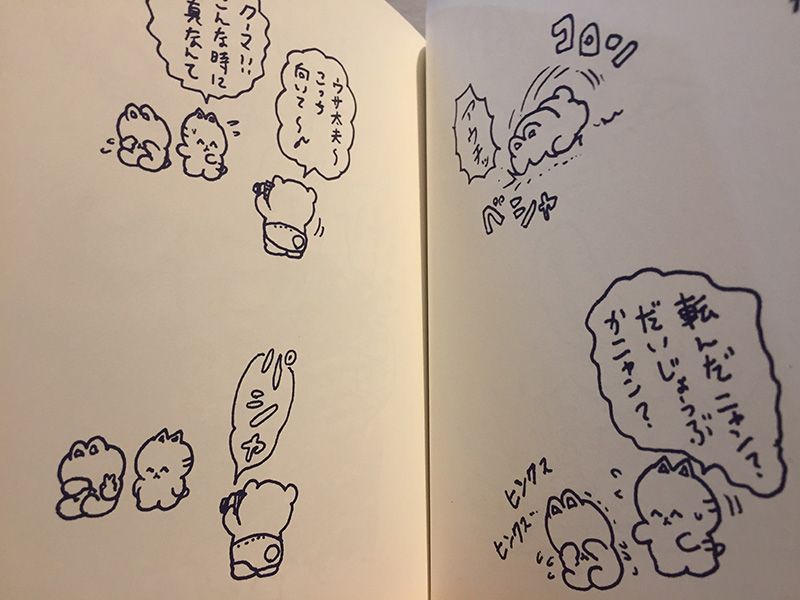 コロン
アウチッ
ベシャ
転んだニャン?
だいじょーぶ
かニャン?
クーマ!!
こんな時に
真なんて
ウサ太夫〜
こっち
向いて〜♪
パシャ